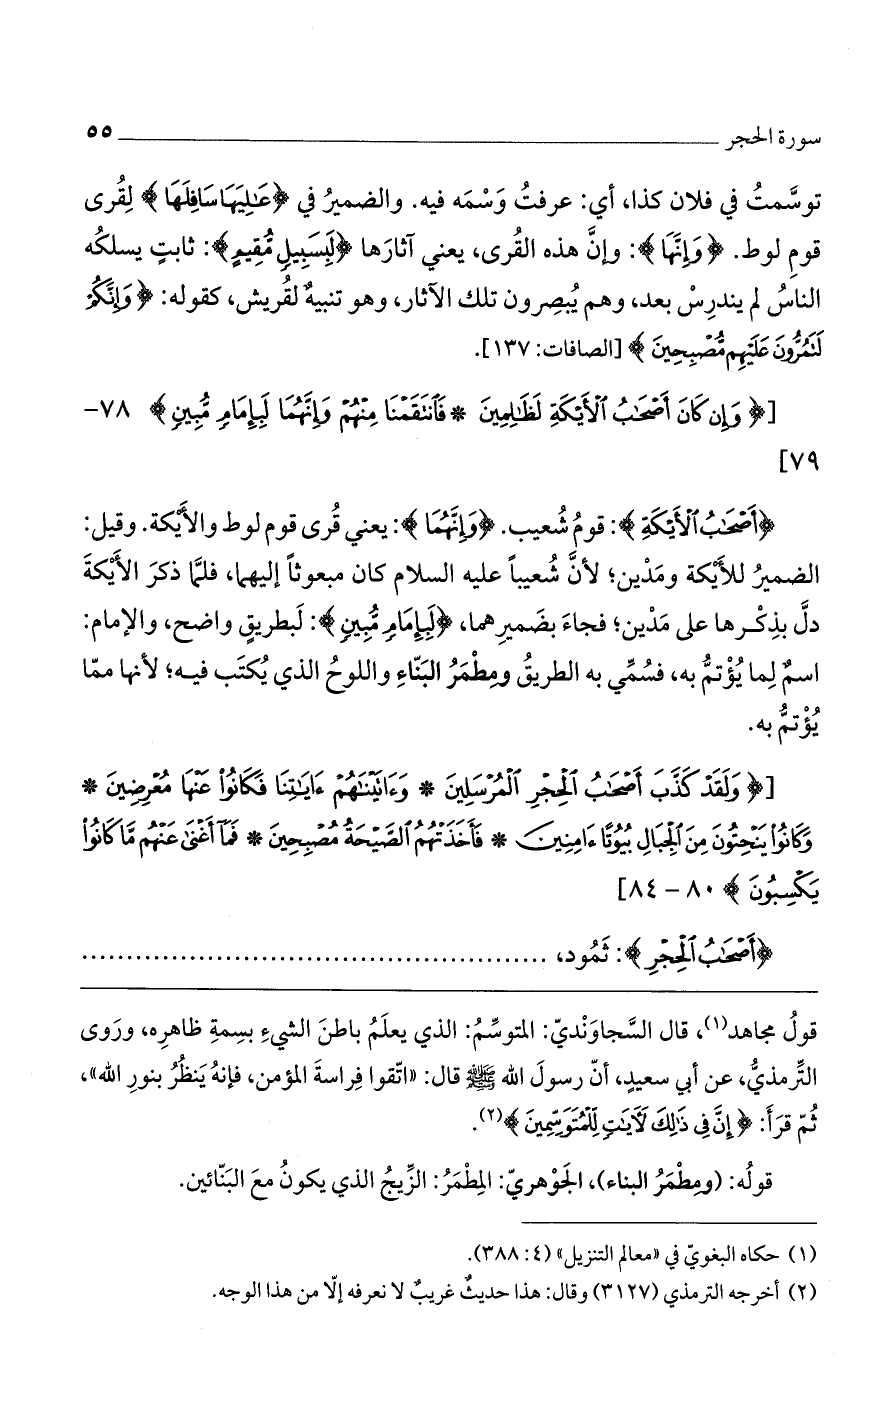 سورة الحجر ٥٥
توسَّمتُ في فلان كذا، أي: عرفتُ وَسْمَه فيه. والضميرُ في ﴿عَٰلِيَهَا سَافِلَهَا﴾ لِقُرى
قومِ لوط. ﴿وَإِنَّهَا﴾: وإنَّ هذه القُرى، يعني آثارَها ﴿لَبِسَبِيلٍ مُّقِيمٍ﴾: ثابتٍ يسلكُه
الناسُ لم يندرِسْ بعد، وهم يُبصِرون تلك الآثار، وهو تنبيهٌ لقُريش، كقوله: ﴿وَإِنَّكُمْ
لَتَمُرُّونَ عَلَيْهِم مُّصْبِحِينَ﴾ [الصافات: ١٣٧].
[﴿وَإِن كَانَ أَصْحَٰبُ ٱلْأَيْكَةِ لَظَٰلِمِينَ * فَٱنتَقَمْنَا مِنْهُمْ وَإِنَّهُمَا لَبِإِمَامٍ مُّبِينٍ﴾ ٧٨-
٧٩]
﴿أَصْحَٰبُ ٱلْأَيْكَةِ﴾: قومُ شُعيب. ﴿وَإِنَّهُمَا﴾: يعني قُرى قوم لوط والأَيْكة. وقيل:
الضميرُ للأَيْكة ومَدْين؛ لأنَّ شُعيباً عليه السلام كان مبعوثاً إليهما، فلمَّا ذكرَ الأَيْكةَ
دلَّ بذِكْرها على مَدْين؛ فجاءَ بضَميرِهما، ﴿لَبِإِمَامٍ مُّبِينٍ﴾: لَبطريقٍ واضح، والإمام:
اسمٌ لِما يُؤْتمُّ به، فسُمِّي به الطريقُ ومِطْمَرُ البَنّاءِ واللوحُ الذي يُكتَب فيه؛ لأنها ممّا
يُؤْتمُّ به.
[﴿وَلَقَدْ كَذَّبَ أَصْحَٰبُ ٱلْحِجْرِ ٱلْمُرْسَلِينَ * وَءَاتَيْنَٰهُمْ ءَايَٰتِنَا فَكَانُوا۟ عَنْهَا مُعْرِضِينَ *
وَكَانُوا۟ يَنْحِتُونَ مِنَ ٱلْجِبَالِ بُيُوتًا ءَامِنِينَ * فَأَخَذَتْهُمُ ٱلصَّيْحَةُ مُصْبِحِينَ * فَمَآ أَغْنَىٰ عَنْهُم مَّا كَانُوا۟
يَكْسِبُونَ﴾ ٨٠ - ٨٤]
﴿أَصْحَٰبُ ٱلْحِجْرِ﴾: ثَمُود، ......................................................
قولُ مجاهد(١)، قال السَّجاوَنْديّ: المتوسِّمُ: الذي يعلَمُ باطنَ الشيءِ بسِمةِ ظاهرِه، ورَوى
التِّرمذيُّ، عن أبي سعيدٍ، أنّ رسولَ الله ﷺ قال: «اتّقوا فِراسةَ المؤمن، فإنهُ يَنظُرُ بنورِ الله»،
ثُمّ قرَأَ: ﴿إِنَّ فِى ذَٰلِكَ لَءَايَٰتٍ لِّلْمُتَوَسِّمِينَ﴾(٢).
قولُه: (ومِطْمَرُ البناء)، الجَوْهريّ: المِطْمَرُ: الزِّيجُ الذي يكونُ معَ البَنّائين.
(١) حكاه البغويّ في «معالم التنزيل» (٤: ٣٨٨).
(٢) أخرجه الترمذي (٣١٢٧) وقال: هذا حديثٌ غريبٌ لا نعرفه إلّا من هذا الوجه.